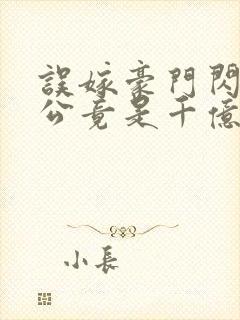 誤嫁豪門閃
公竟是千億
小長